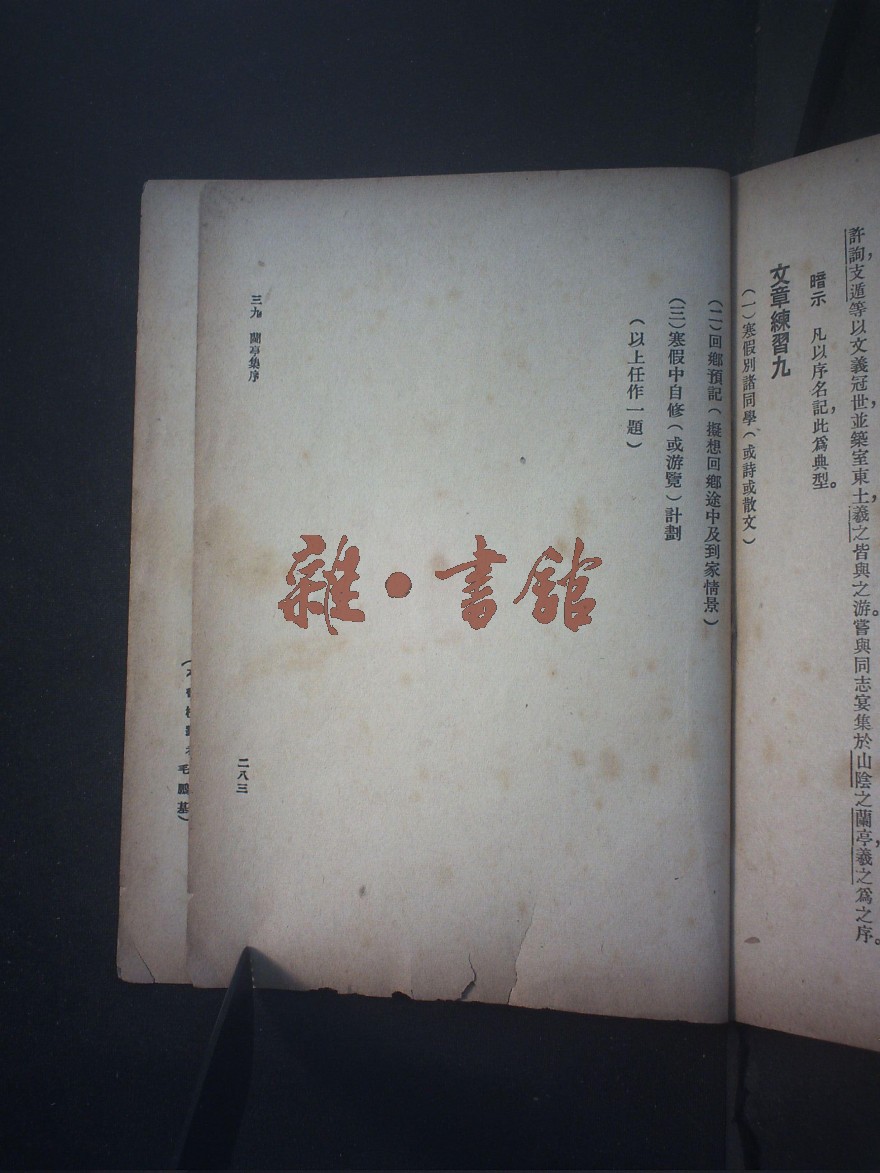 許詢，支遁等以文義冠世，並築室東土，羲之皆與之游。嘗與同志宴集於山陰之蘭亭，羲之爲之序。
暗示　凡以序名記，此爲典型。
文章練習九
（一）寒假別諸同學（或詩或散文）
（二）回鄉預記（擬想回鄉途中及到家情景）
（三）寒假中自修（或游覽）計劃
（以上任作一題）
三九　蘭亭集序
二八三
雜·書館